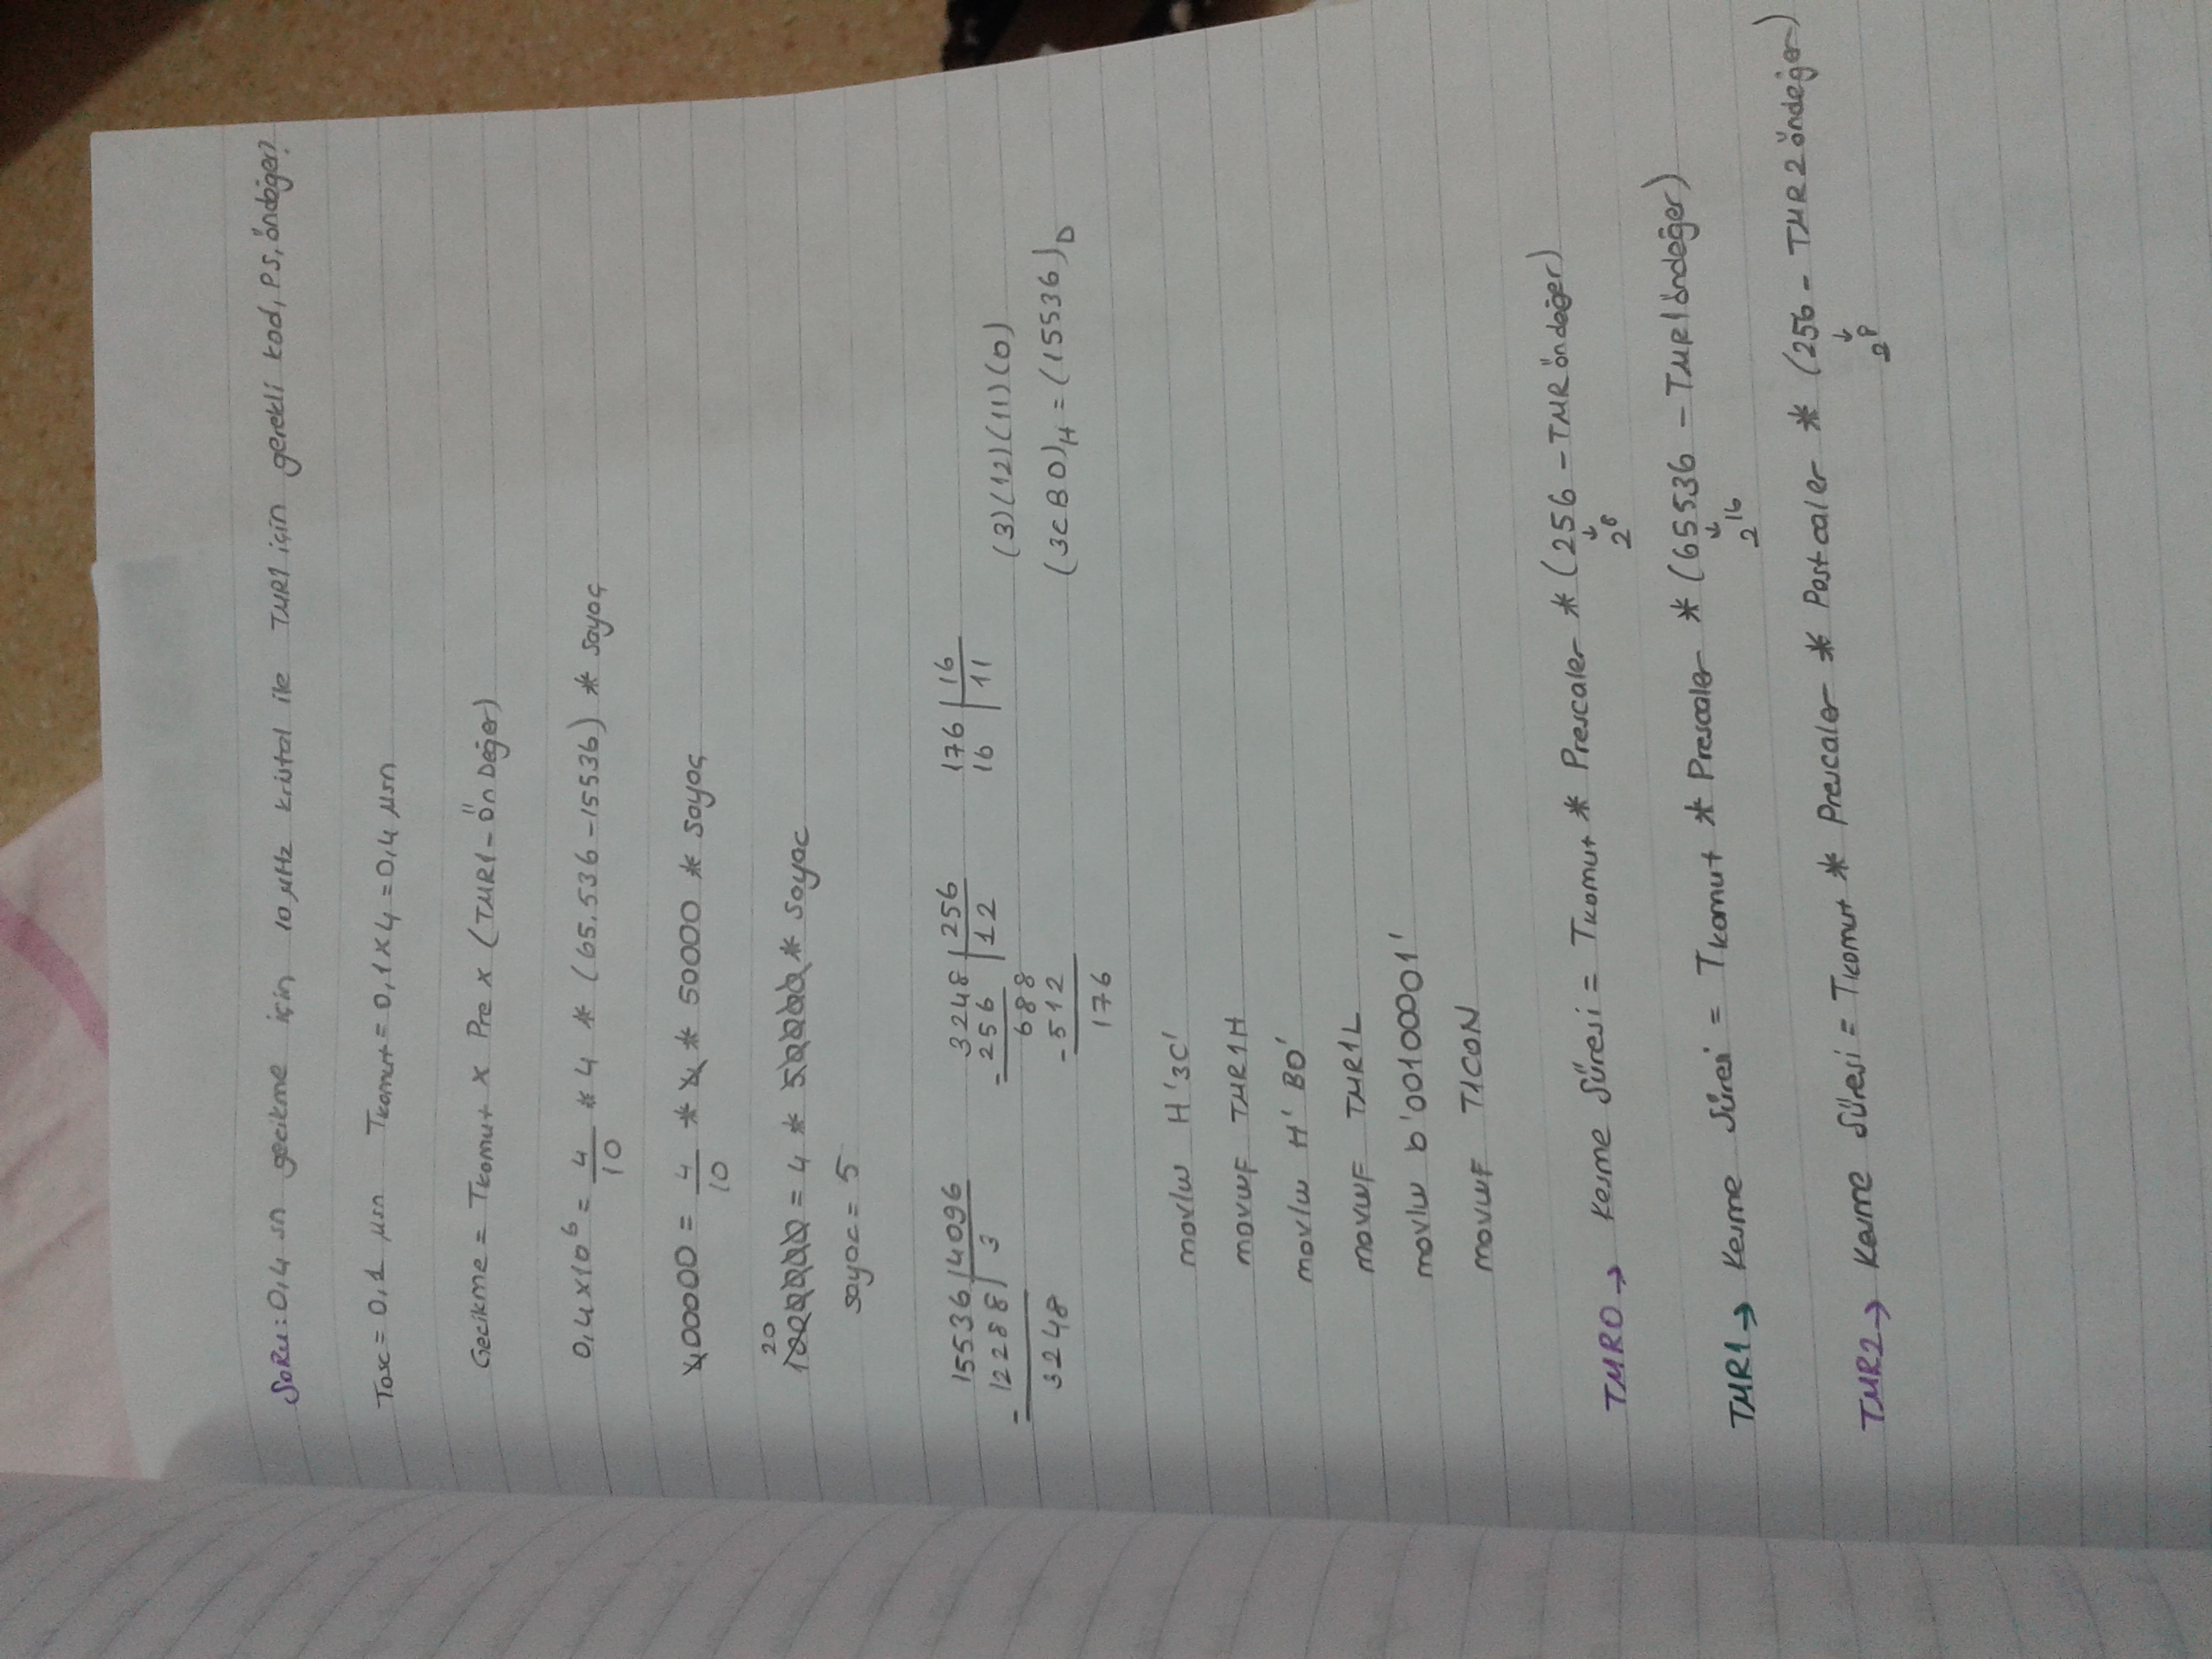 SoRu: 0,4 sn gecikme için 10 MHz kristal ile TMR1 için gerekli kod, PS, öndeğer?
Tosc = 0,1 µsn Tkomut = 0,1 x 4 = 0,4 µsn
Gecikme = Tkomut x Pre x (TMR1 - Ön Değer)
0,4 x 10⁶ = 4/10 * 4 * (65.536 - 15536) * sayaç
400000 = 4/10 * 4 * 50000 * sayaç
20
1000000 = 4 * 50000 * sayac
sayac = 5
15536 | 4096 3248 | 256 176 | 16
- 12288 | 3 - 256 | 12 16 | 11 (3)(12)(11)(0)
3248 688 (3CB0)H = (15536)D
- 512
176
movlw H'3C'
movwF TMR1H
movlw H'B0'
movwF TMR1L
movlw b'00100001'
movwF T1CON
TMR0 → Kesme Süresi = Tkomut * Prescaler * (256 - TMR öndeğer)
↓
2⁸
TMR1 → Kesme Süresi = Tkomut * Prescaler * (65536 - TMR1 öndeğer)
↓
2¹⁶
TMR2 → Kesme Süresi = Tkomut * Prescaler * Postcaler * (256 - TMR2 öndeğer)
↓
2⁸